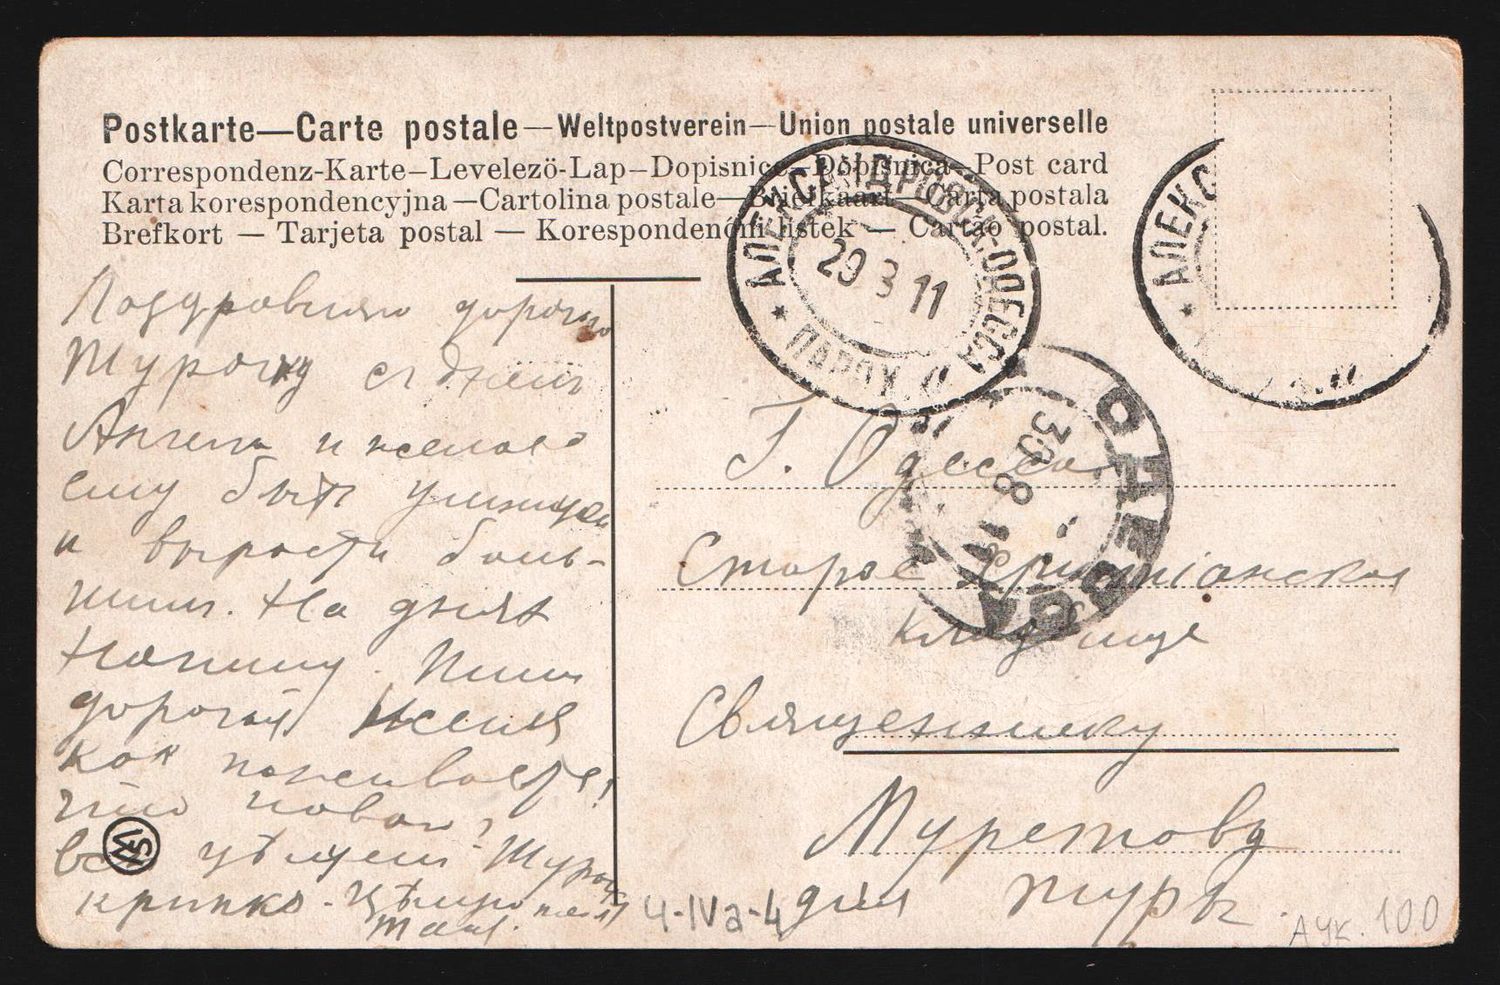 Postkarte—Carte postale—Weltpostverein—Union postale universelle
Correspondenz-Karte—Levelezö-Lap—Dopisnice—Dopisnica—Post card
Karta korespondencyjna—Cartolina postale—Briefkaart—Carta postala
Brefkort — Tarjeta postal — Korespondenční listek — Cartão postal.
* АЛЕКСАНДРОВСК.ОДЕССА
29 3 11
* ПАРОХ.
* АЛЕКС
ОДЕССА
30 8 11
Поздравляю дорогого
Шурочку съ днемъ
Ангела и желаю
ему быть умницей
и вырости боль-
шимъ. На дняхъ
напишу. Пиши
дорогая Женя
как поживаете,
что новаго,
всѣ цѣлуем Шуроч
крѣпко.
г. Одесса
Старое христіанское
кладбище
Священнику
Муретову
для Шуры.
Ч-IVа-4
АУК. 100